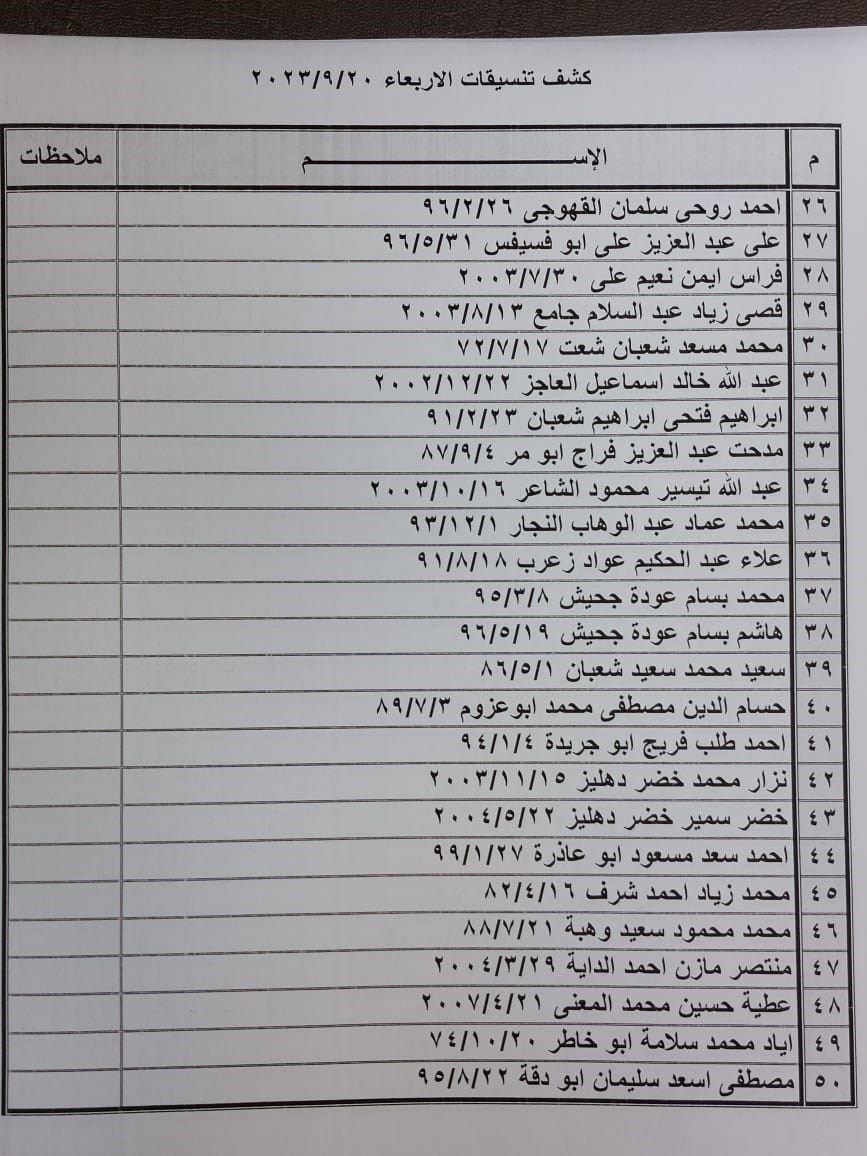 كشف تنسيقات الاربعاء ٢٠٢٣/٩/٢٠
م الإســـــــــــــم ملاحظات
٢٦ احمد روحى سلمان القهوجى ٩٦/٢/٢٦
٢٧ على عبد العزيز على ابو فسيفس ٩٦/٥/٣١
٢٨ فراس ايمن نعيم على ٢٠٠٣/٧/٣٠
٢٩ قصى زياد عبد السلام جامع ٢٠٠٣/٨/١٣
٣٠ محمد مسعد شعبان شعت ٧٢/٧/١٧
٣١ عبد الله خالد اسماعيل العاجز ٢٠٠٢/١٢/٢٢
٣٢ ابراهيم فتحى ابراهيم شعبان ٩١/٢/٢٣
٣٣ مدحت عبد العزيز فراج ابو مر ٨٧/٩/٤
٣٤ عبد الله تيسير محمود الشاعر ٢٠٠٣/١٠/١٦
٣٥ محمد عماد عبد الوهاب النجار ٩٣/١٢/١
٣٦ علاء عبد الحكيم عواد زعرب ٩١/٨/١٨
٣٧ محمد بسام عودة جحيش ٩٥/٣/٨
٣٨ هاشم بسام عودة جحيش ٩٦/٥/١٩
٣٩ سعيد محمد سعيد شعبان ٨٦/٥/١
٤٠ حسام الدين مصطفى محمد ابوعزوم ٨٩/٧/٣
٤١ احمد طلب فريج ابو جريدة ٩٤/١/٤
٤٢ نزار محمد خضر دهليز ٢٠٠٣/١١/١٥
٤٣ خضر سمير خضر دهليز ٢٠٠٤/٥/٢٢
٤٤ احمد سعد مسعود ابو عاذرة ٩٩/١/٢٧
٤٥ محمد زياد احمد شرف ٨٢/٤/١٦
٤٦ محمد محمود سعيد وهبة ٨٨/٧/٢١
٤٧ منتصر مازن احمد الداية ٢٠٠٤/٣/٢٩
٤٨ عطية حسين محمد المعنى ٢٠٠٧/٤/٢١
٤٩ اياد محمد سلامة ابو خاطر ٧٤/١٠/٢٠
٥٠ مصطفى اسعد سليمان ابو دقة ٩٥/٨/٢٢